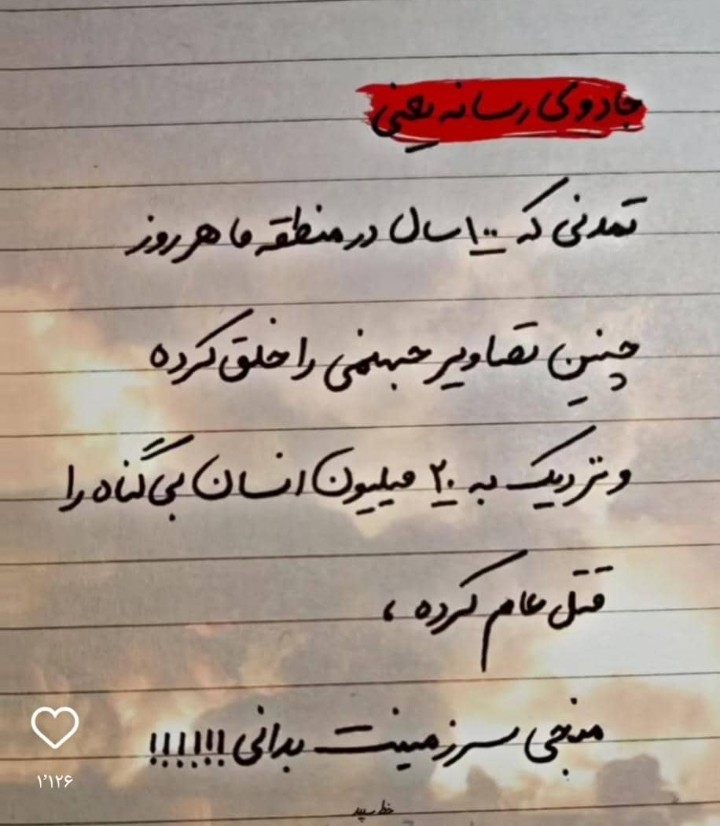 جادوی رسانه یعنی
تمدنی که ۱۰۰ سال در منطقه ما هر روز
چنین تصاویر جهنمی را خلق کرده
و نزدیک به ۲۰ میلیون انسان بی گناه را
قتل عام کرده ،
منجی سرزمینت بدانی !!!!!!
۱٬۱۲۶
خط سپید